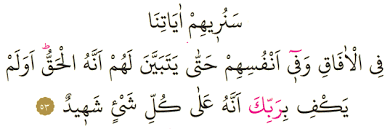 سَنُر۪يهِمْ اٰيَاتِنَا
فِي الْاٰفَاقِ وَف۪ٓي اَنْفُسِهِمْ حَتّٰى يَتَبَيَّنَ لَهُمْ اَنَّهُ الْحَقُّۜ اَوَلَمْ
يَكْفِ بِرَبِّكَ اَنَّهُ عَلٰى كُلِّ شَيْءٍ شَه۪يدٌ ٥٣